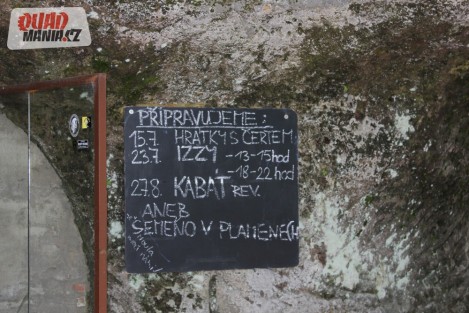 QUAD
MANIA.CZ
PŘIPRAVUJEME:
15.7. HRÁTKY S ČERTEM
23.7. IZZY -13-15hod
-18-22 hod
27.8. KABÁT REV.
ANEB
SEMENO V PLAMENECH